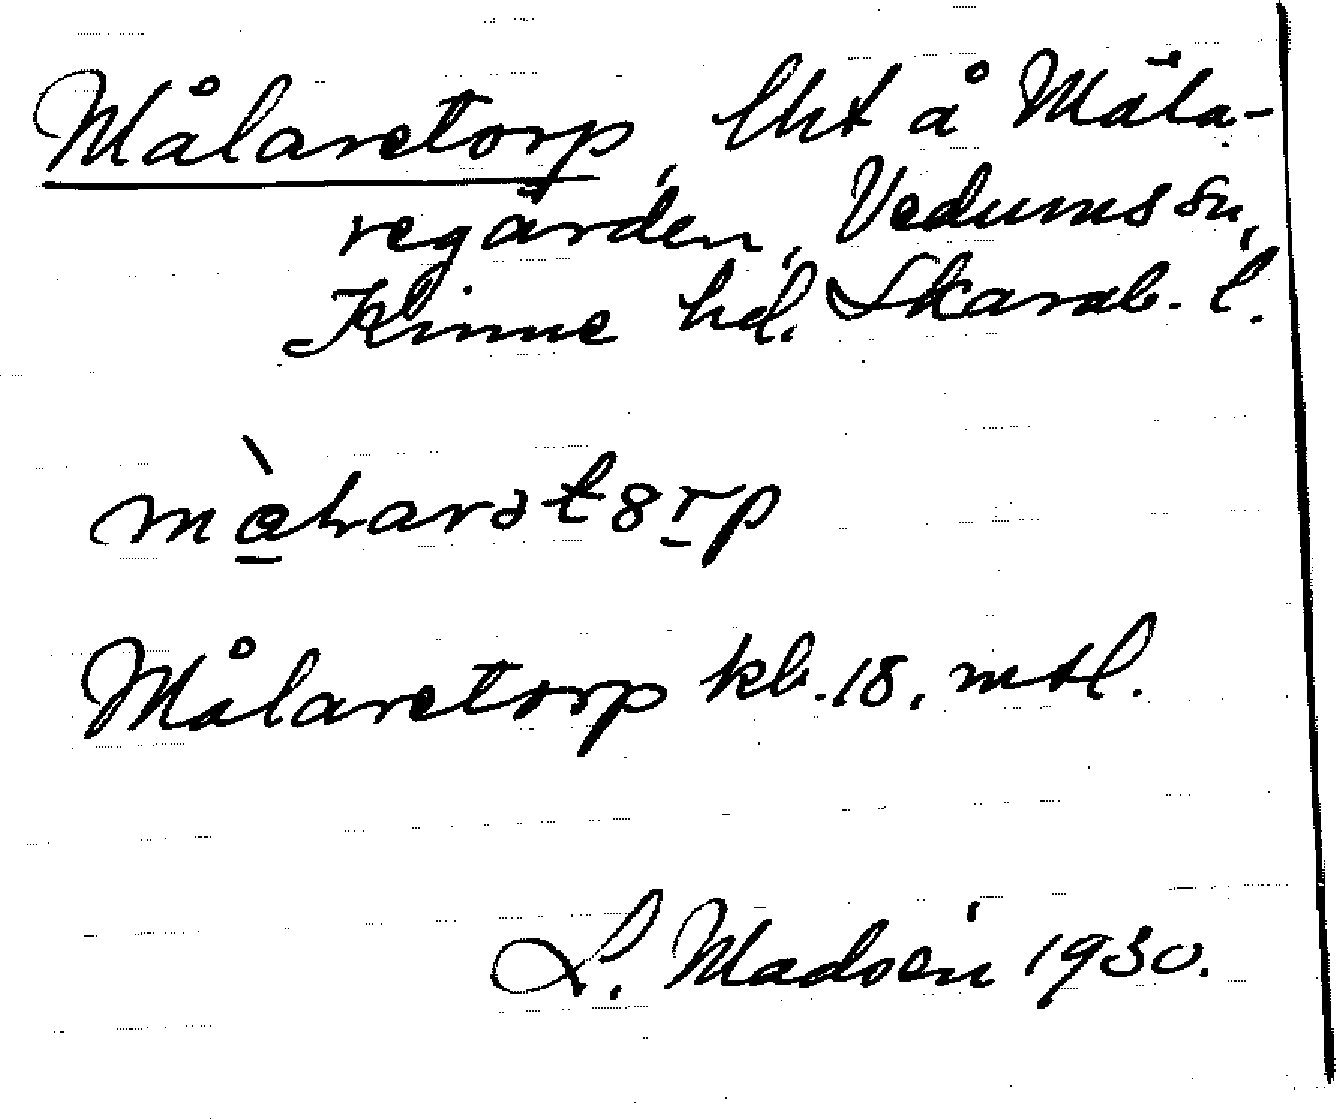 Målaretorp, lht å Måla-
regården, Vedums sn,
Kinne hd. Skarab. l.
målarət8rp
Målaretorp kb. 18, mtl.
L. Madsén 1930.